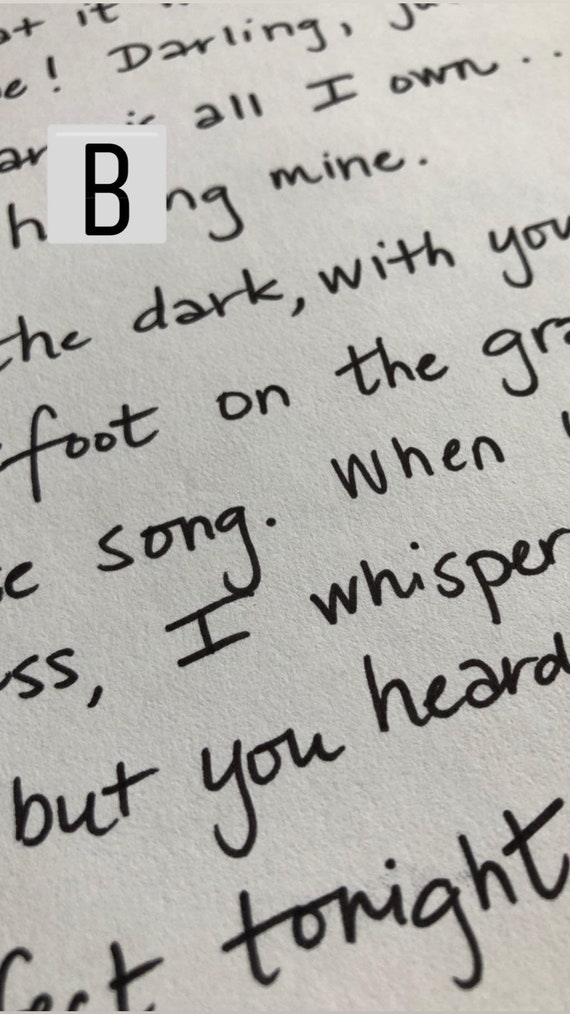 at it
e! Darling, ju
is all I own...
B
mine.
the dark, with you
foot on the gra
se song. When
ss, I whisper
but you heard
fect tonight